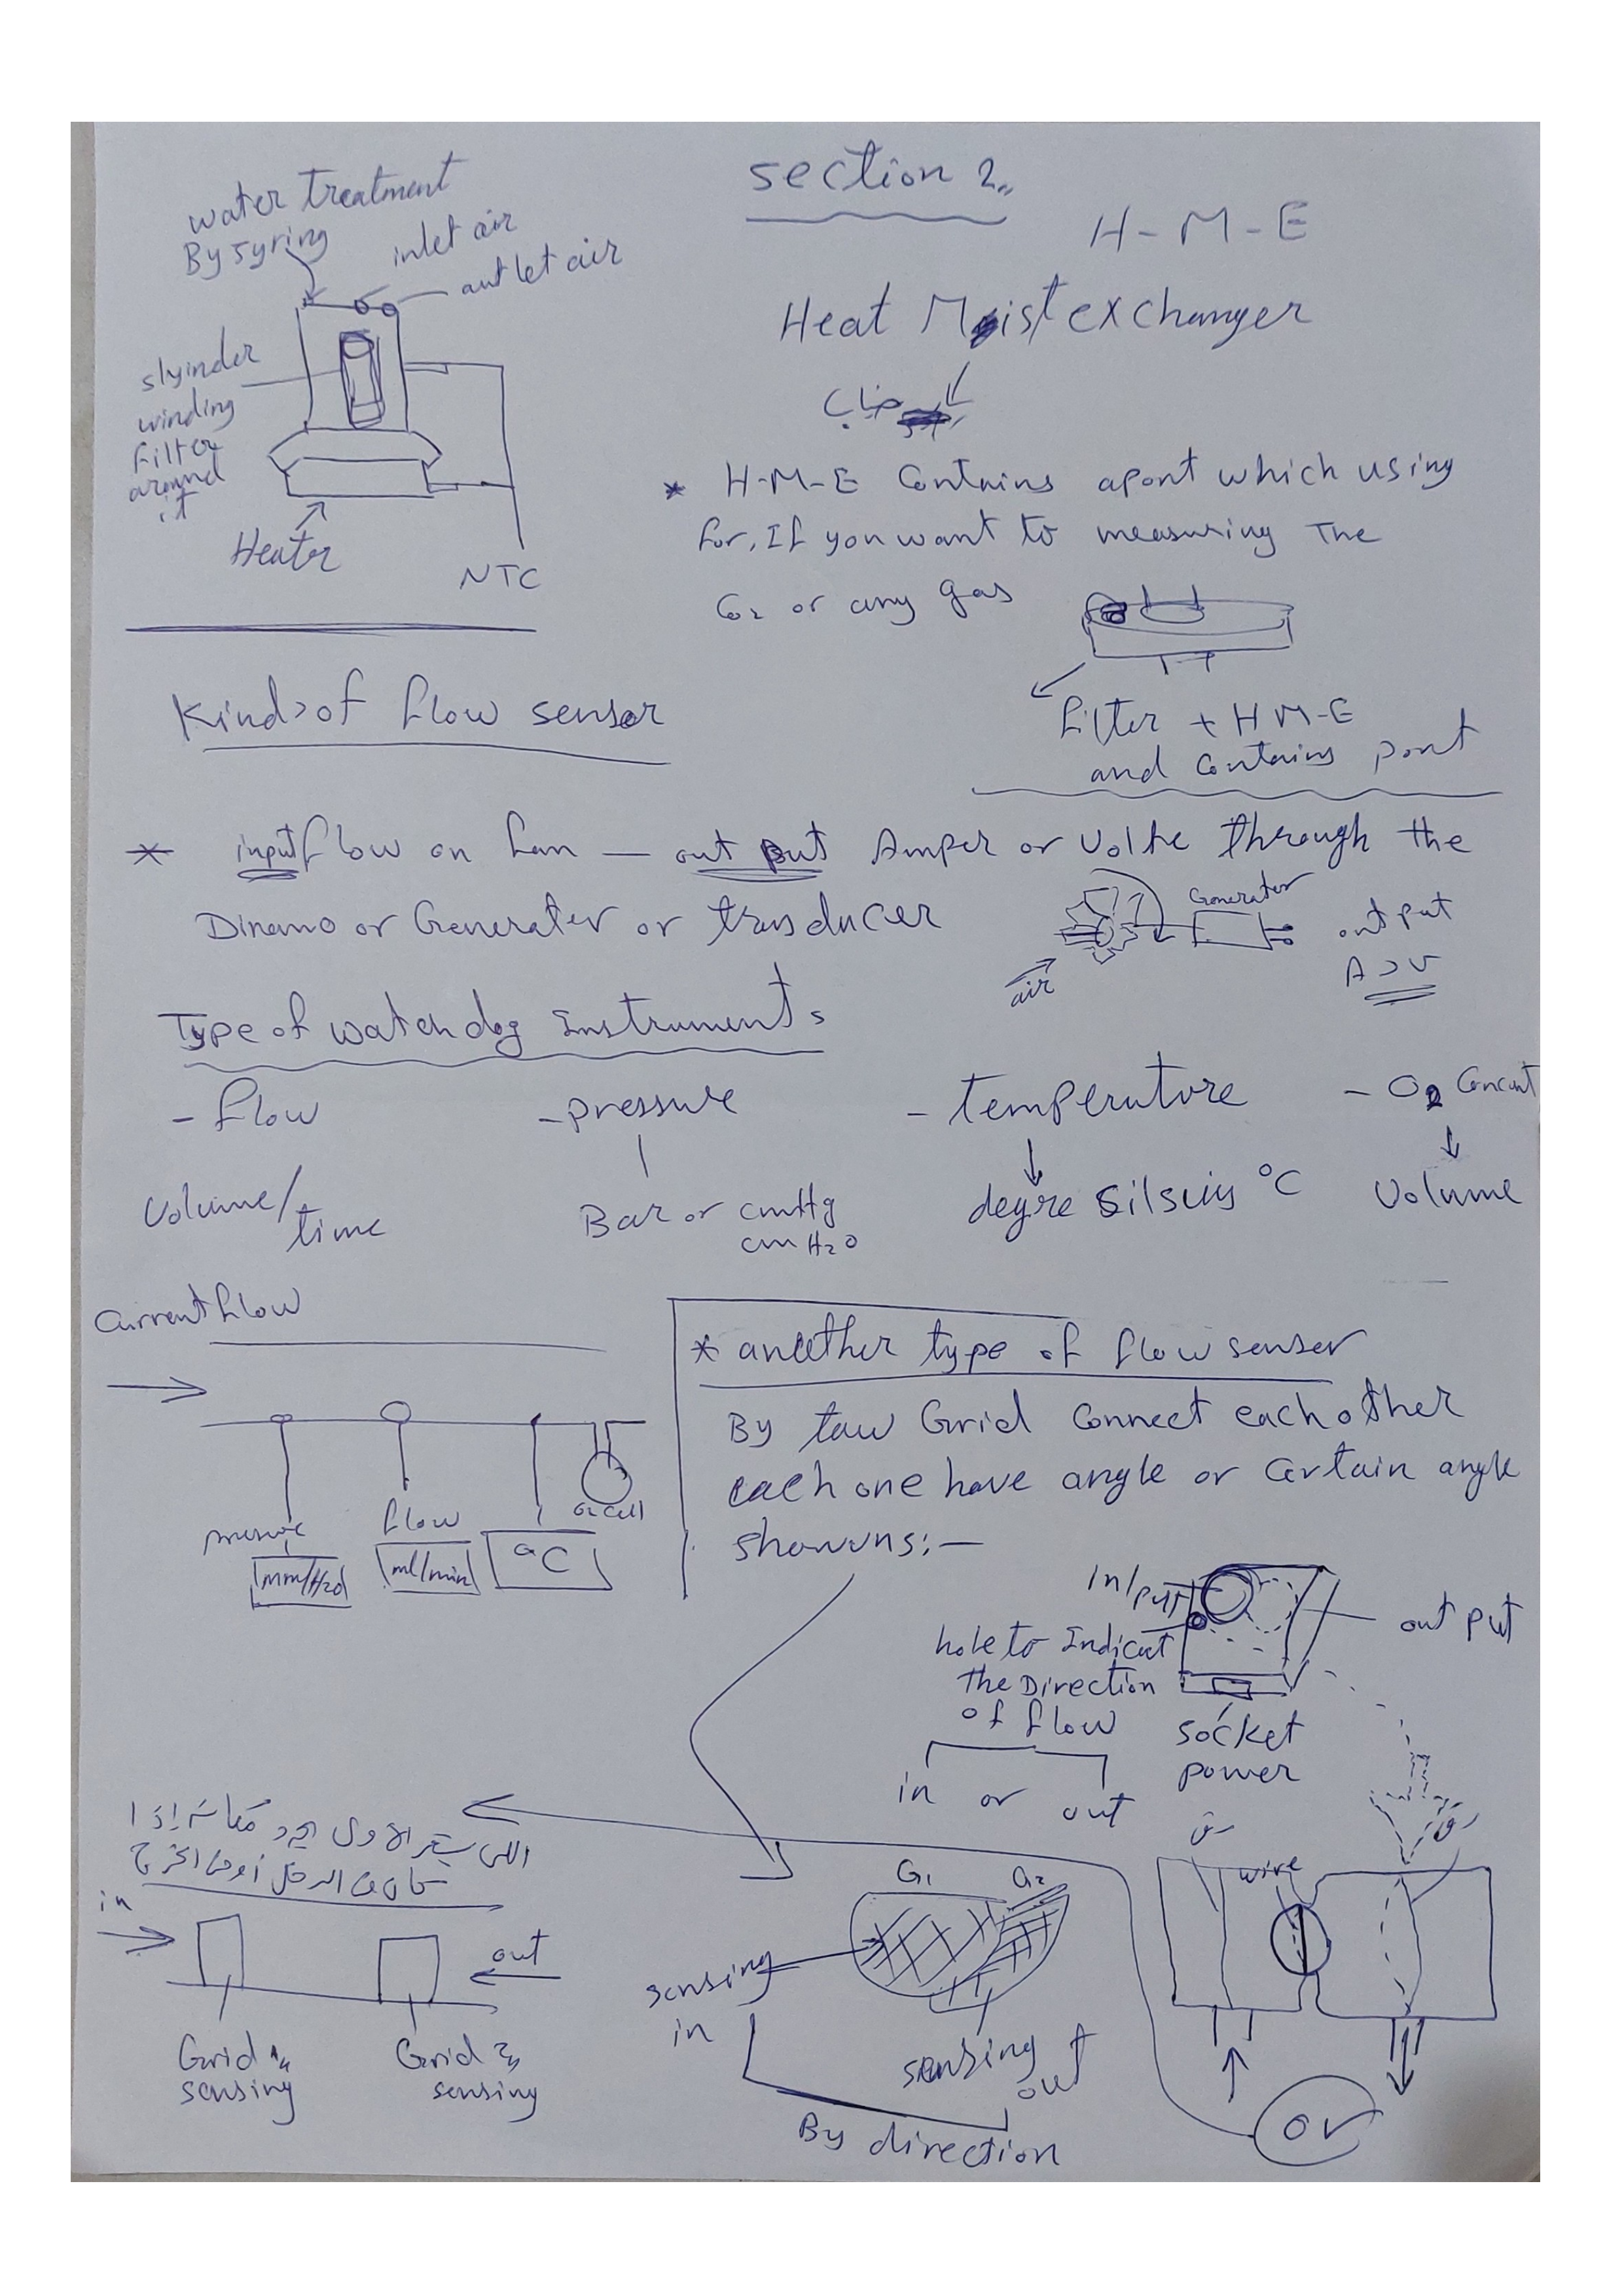 section 2
water treatment
By syring
inlet air
outlet air
slyinder
winding
filter
around
it
Heater
NTC
H - M - E
Heat Moist exchanger
* H-M-E Contains aport which using
for, If you want to measuring The
Co2 or any gas
filter + H M-E
and Contains port
Kinds of flow sensor
* input flow on fan — out put Amper or Volte through the
Dinamo or Generater or transducer
Generator
air
out put
Type of watch dog Instruments
- flow
- pressure
- temperature
- O2 Concent
Volume/
time
Bar or cmHg
cm H2O
degre Silsuis °C
Volume
Current flow
pressure
flow
O2 cell
mm/H2O
ml/min
°C
* anether type of flow senser
By taw Grid Connect each other
each one have angle or Certain angle
showns:—
in/put
out put
hole to Indicat
The Direction
of flow
in or out
socket
power
اللى يستشعر الاول يحدد مكانه إذا
كان فى الدخل أو فى الخرج
in
out
Grid 1
sensing
Grid 2
sensing
G1
G2
sensing
in
sensing
out
By direction
wire
or